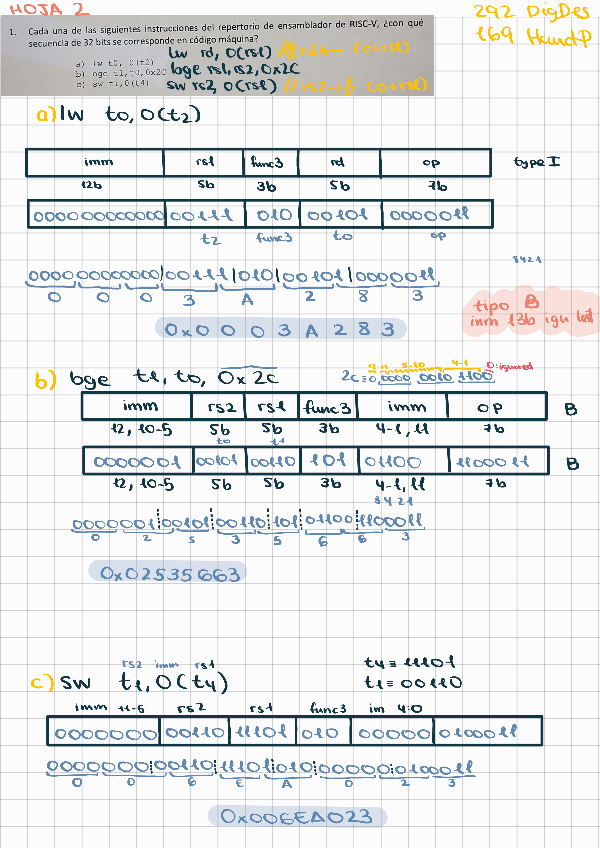 HOJA 2
292 DigDes
169 HandP
1. Cada una de las siguientes instrucciones del repertorio de ensamblador de RISC-V, ¿con qué
secuencia de 32 bits se corresponde en código máquina?
a) lw t0, 0(t2)
lw rd, 0(rs1)
b) bge t1,t0,0x2C
bge rs1, rs2, 0x2C
c) sw t1,0(t4)
sw rs2, 0(rs1)
a) lw t0, 0(t2)
imm rs1 func3 rd op type I
12b 5b 3b 5b 7b
000000000000 00111 010 00101 0000011
t2 func3 t0 op
8421
000000000000|00111|010|00101|0000011
0 0 0 3 A 2 8 3
0x0003A283
tipo B
inm 13b ign lst
b) bge t1, t0, 0x2c
12 11 5-10 4-1 0:ignored
2c=0,0000 0010 1100
imm rs2 rs1 func3 imm op B
12, 10-5 5b 5b 3b 4-1, 11 7b
t0 t1
0000001 00101 00110 101 01100 1100011 B
12, 10-5 5b 5b 3b 4-1, 11 7b
8421
0000001 00101 00110 101 01100 1100011
0 2 5 3 5 6 6 3
0x02535663
rs2 imm rs1
c) sw t1, 0(t4)
t4 = 11101
t1 = 00110
imm 11-5 rs2 rs1 func3 im 4:0
0000000 00110 11101 010 00000 0100011
0000000 00110 11101 010 00000 0100011
0 0 6 E A 0 2 3
0x006EA023